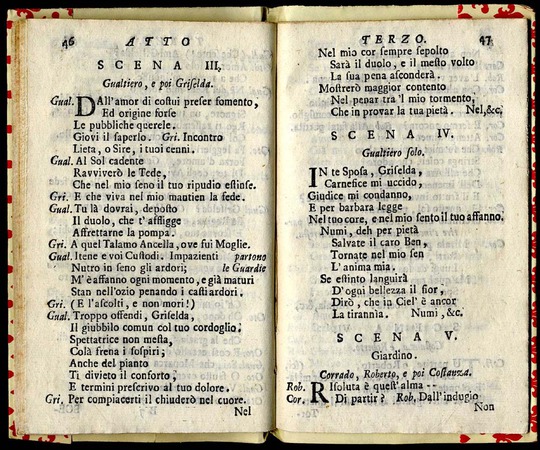 46 ATTO
SCENA III.
Gualtiero, e poi Griselda.
Gual. DAll'amor di costui preser fomento,
Ed origine forse
Le pubbliche querele.
Giovi il saperlo. Gri. Incontro
Lieta, o Sire, i tuoi cenni.
Gual. Al Sol cadente
Ravviverò le Tede,
Che nel mio seno il tuo ripudio estinse.
Gri. E che viva nel mio mantien la fede.
Gual. Tu là dovrai, deposto
Il duolo, che t'affligge
Affrettarne la pompa.
Gri. A quel Talamo Ancella, ove fui Moglie.
Gual. Itene e voi Custodi. Impazienti partono
Nutro in seno gli ardori; le Guardie
M'è affanno ogni momento, e già maturi
Stan nell'ozio penando i casti ardori.
Gri. (E l'ascolti, e non mori!)
Gual. Troppo offendi, Griselda,
Il giubbilo comun col tuo cordoglio.
Spettatrice non mesta,
Colà frena i sospiri;
Anche del pianto
Ti divieto il conforto,
E termini prescrivo al tuo dolore.
Gri. Per compiacerti il chiuderò nel cuore.
Nel
TERZO. 47
Nel mio cor sempre sepolto
Sarà il duolo, e il mesto volto
La sua pena asconderà.
Mostrerò maggior contento
Nel penar tra 'l mio tormento,
Che in provar la tua pietà. Nel, &c.
SCENA IV.
Gualtiero solo.
IN te Sposa, Griselda,
Carnefice mi uccido,
Giudice mi condanno,
E per barbara legge
Nel tuo core, e nel mio sento il tuo affanno.
Numi, deh per pietà
Salvate il caro Ben,
Tornate nel mio sen
L'anima mia.
Se estinto languirà
D'ogni bellezza il fior,
Dirò, che in Ciel' è ancor
La tirannìa. Numi, &c.
SCENA V.
Giardino.
Corrado, Roberto, e poi Costanza.
Rob. RIsoluta è quest'alma --
Cor. Di partir? Rob. Dall'indugio
Non